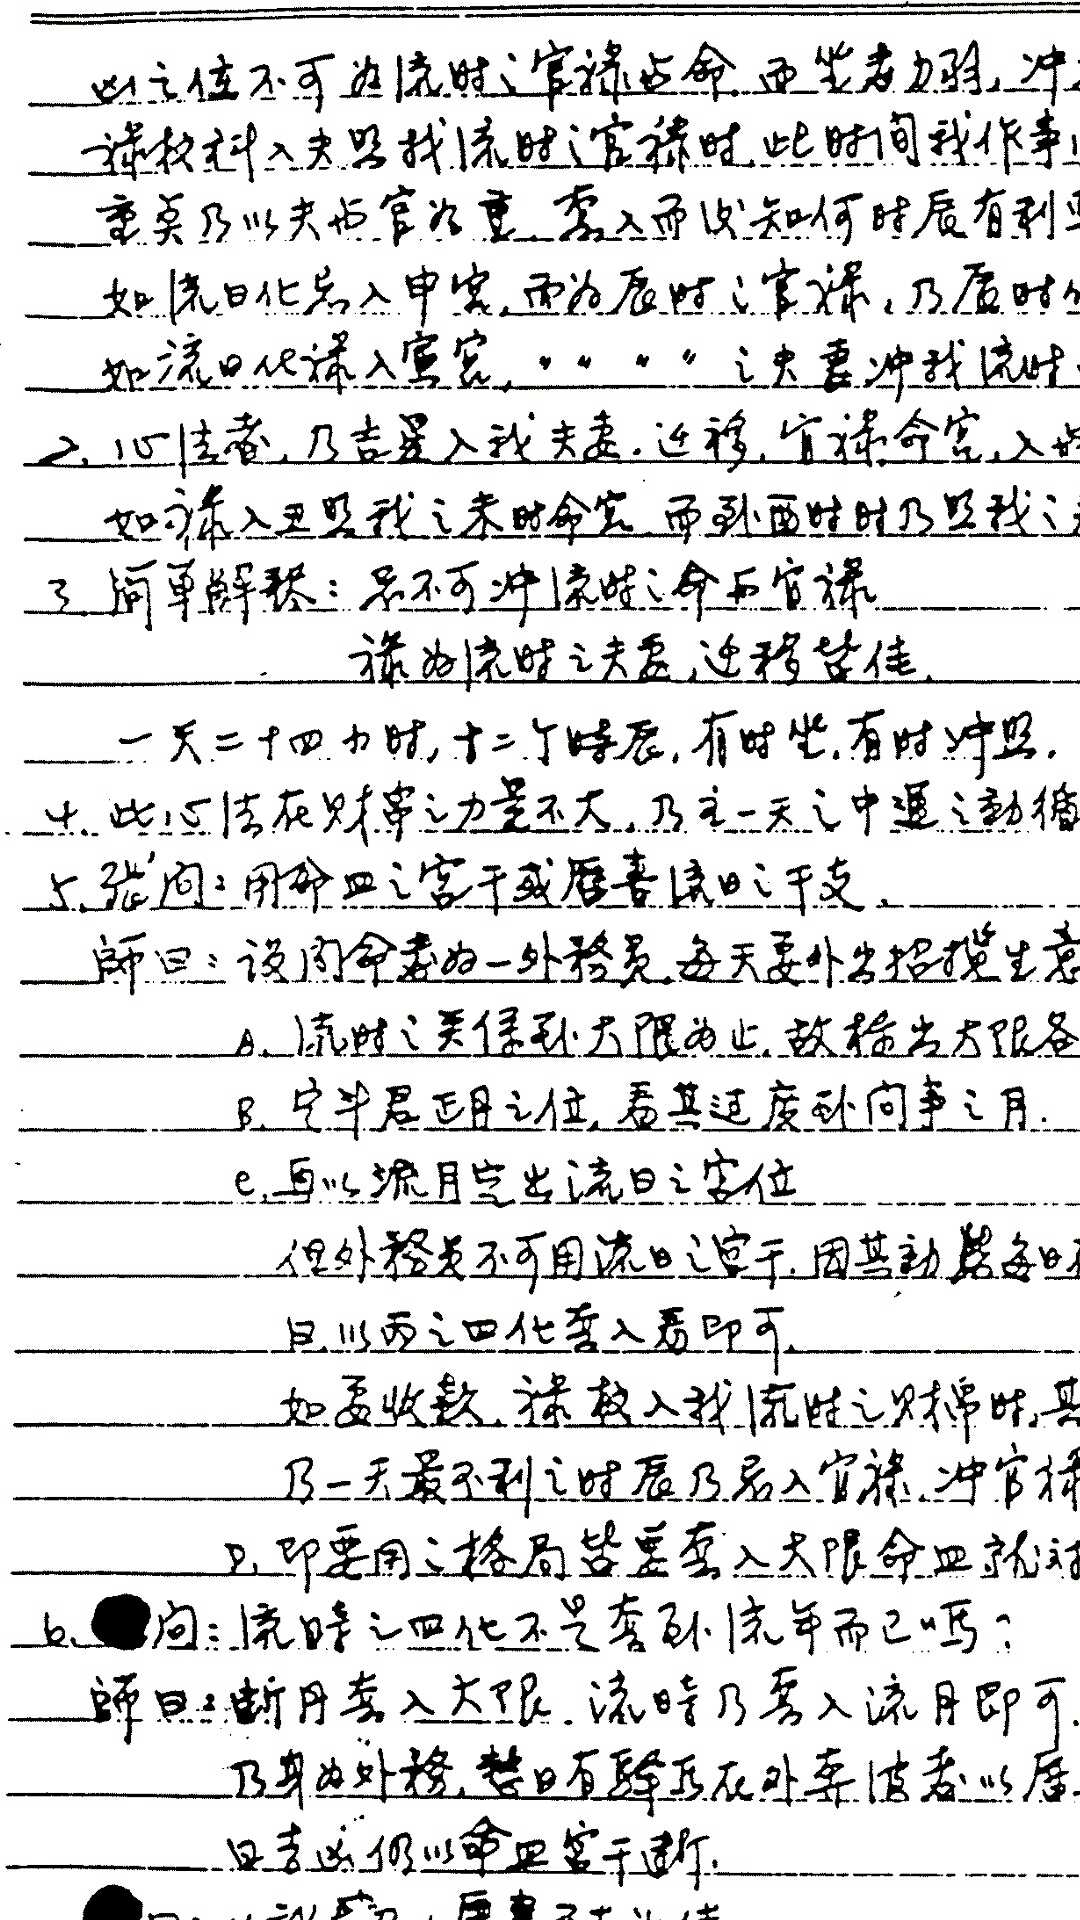 此之位不可为流时之官禄与命.而坐者力弱,冲
禄权科入夫照我流时之官禄时.此时间我作事
重奠乃以夫与官为重.套入而後知何时辰有利
如流日化忌入申宫.而为辰时之官禄,乃辰时
如流日化禄入寅宫.〃〃〃〃之夫妻冲我流时
2.心法者,乃吉星入我夫妻.迁移.官禄.命宫,入
如禄入丑照我之未时命宫.而到酉时时乃照我之
3.简单解释:忌不可冲流时之命与官禄
禄为流时之夫妻,迁移皆佳.
一天二十四小时,十二个時辰,有时坐.有时冲照.
4.此心法在财帛之力量不大,乃主一天之中運之動循
5.张問:用命皿之宫干或曆書流日之干支.
師曰:设问命者为一外務员.每天要外出招揽生意
A.流时之关係到大限为止.故标出大限各
B.定斗君正月之位,看其过度到问事之月.
C.再以流月定出流日之宫位
但外務员不可用流日之宫干.因其動態每日
日以丙之四化套入看即可.
如要收款.禄权入我流时之财帛时,其
乃一天最不利之时辰乃忌入官禄.冲官禄
D.即要用之格局皆要套入大限命皿就
6. 问:流時之四化不是套到流年而已吗?
師曰:断月套入大限.流時乃套入流月即可.
乃身为外務.整日有驿马在外奔波者以曆
日吉凶仍以命皿宫干断.